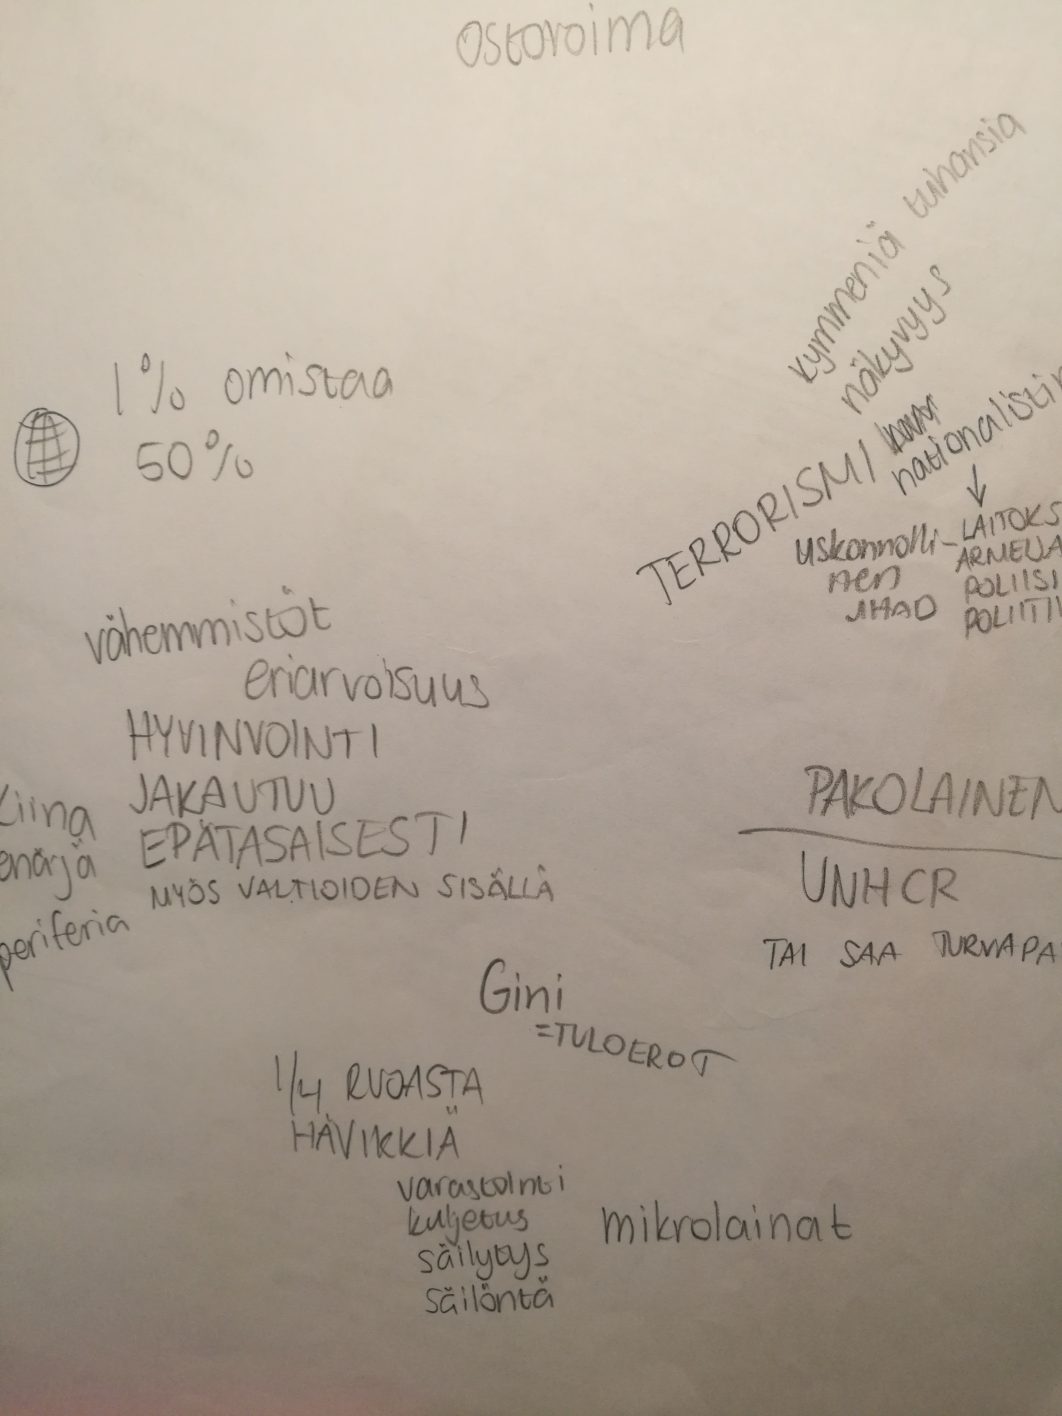 ostovoima
kymmeniä tuhansia
näkyvyys
1% omistaa
50%
TERRORISMI
nationalistin
uskonnolli-
nen
JIHAD
LAITOKS
ARMEIJA
POLIISI
POLIITI
vähemmistöt
eriarvoisuus
HYVINVOINTI
JAKAUTUU
EPÄTASAISESTI
MYÖS VALTIOIDEN SISÄLLÄ
Kiina
periferia
PAKOLAINEN
UNHCR
TAI SAA TURVAPA
Gini
=TULOEROT
1/4 RUOASTA
HÄVIKKIÄ
varastointi
kuljetus
säilytys
säilöntä
mikrolainat